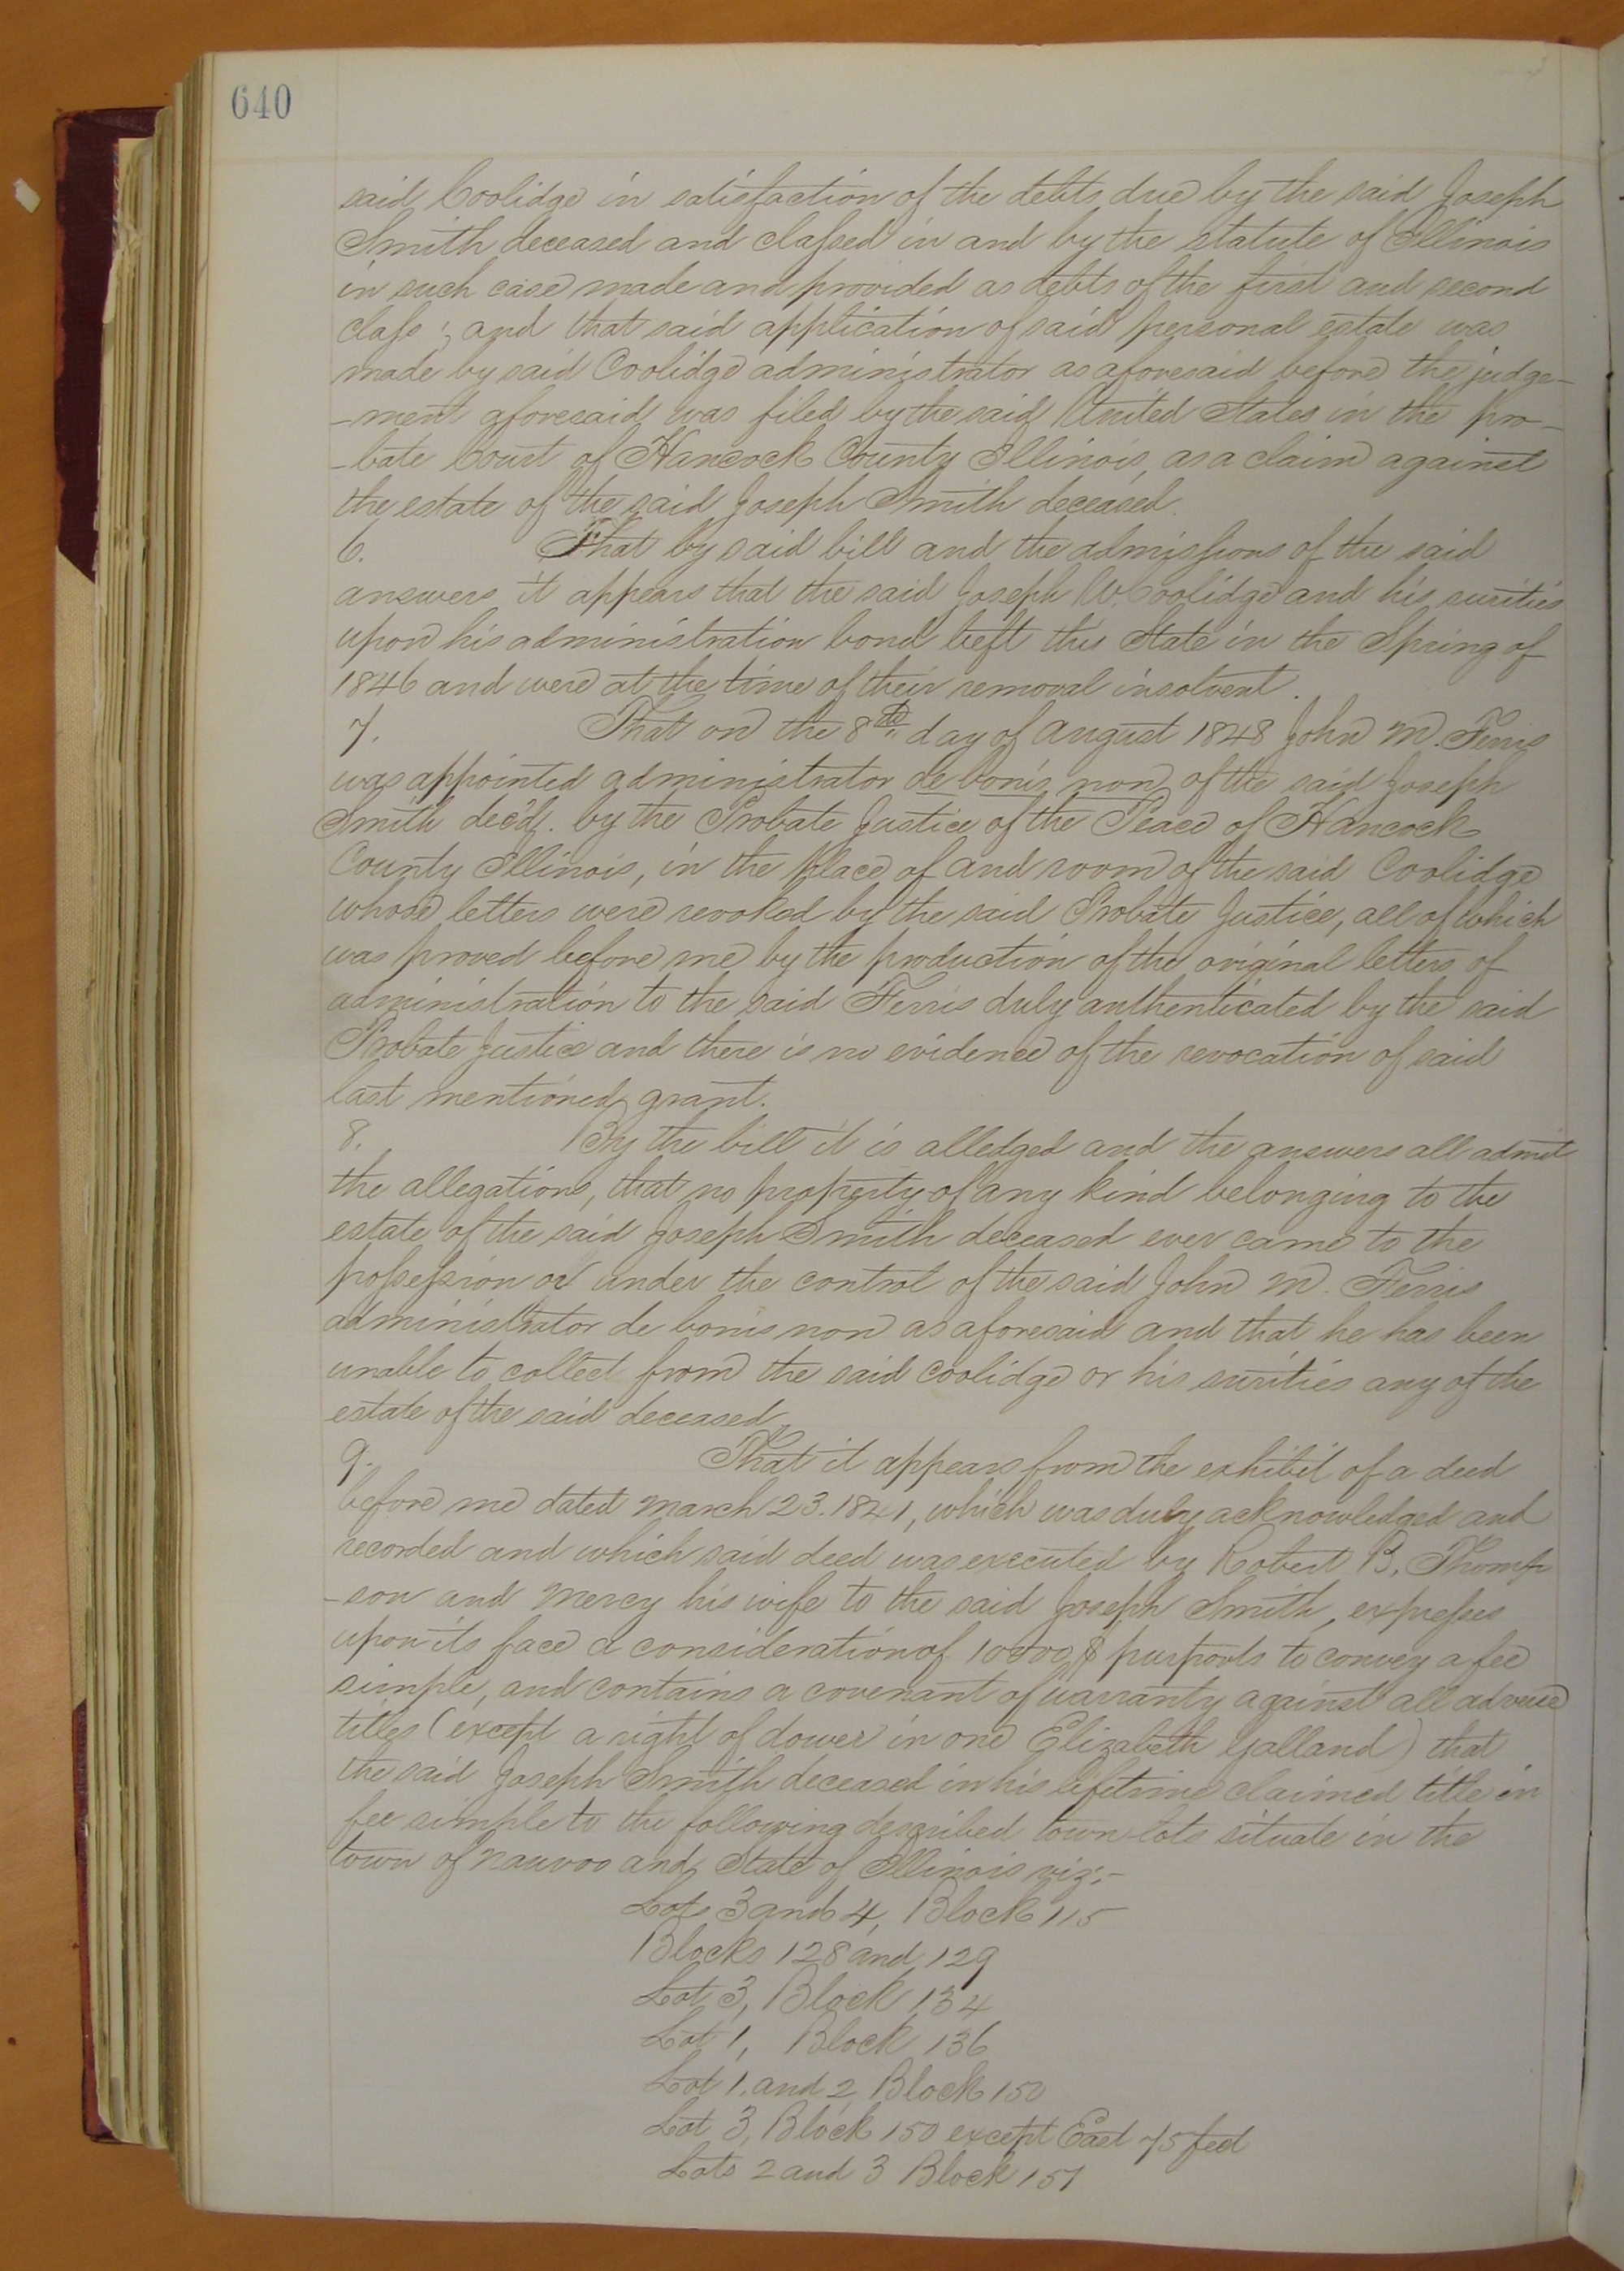 640
said Coolidge in satisfaction of the debts due by the said Joseph
Smith deceased and classed in and by the statute of Illinois
in such case made and provided as debts of the first and second
class; and that said application of said personal estate was
made by said Coolidge administrator as aforesaid before the judge-
-ment aforesaid was filed by the said United States in the pro-
-bate Court of Hancock County Illinois, as a claim against
the estate of the said Joseph Smith deceased.
6. That by said bill and the admissions of the said
answers it appears that the said Joseph W. Coolidge and his surities
upon his administration bond left this State in the Spring of
1846 and were at the time of their removal insolvent.
7. That on the 8th day of August 1848 John M. Ferris
was appointed administrator de bonis non of the said Joseph
Smith dec'd. by the Probate Justice of the Peace of Hancock
County Illinois, in the place of and room of the said Coolidge
whose letters were revoked by the said Probate Justice, all of which
was proved before me by the production of the original letters of
administration to the said Ferris duly authenticated by the said
Probate Justice and there is no evidence of the revocation of said
last mentioned grant.
8. By the bill it is alledged and the answers all admit
the allegations, that no property of any kind belonging to the
estate of the said Joseph Smith deceased ever came to the
possession or under the control of the said John M. Ferris
administrator de bonis non as aforesaid and that he has been
unable to collect from the said Coolidge or his surities any of the
estate of the said deceased
9. That it appears from the exhibit of a deed
before me dated March 23. 1841, which was duly acknowledged and
recorded and which said deed was executed by Robert B. Thomp
-son and Mercy his wife to the said Joseph Smith, expresses
upon its face a consideration of 10000$ purports to convey a fee
simple, and contains a covenant of warranty against all adverse
titles (except a right of dower in one Elizabeth Galland) that
the said Joseph Smith deceased in his lifetime claimed title in
fee simple to the following described town lots situate in the
town of Nauvoo and State of Illinois viz;-
Lots 3 and 4, Block 115
Blocks 128 and 129
Lot 3, Block 134
Lot 1, Block 136
Lot 1. and 2 Block 150
Lot 3, Block 150 except East 75 feet
Lots 2 and 3 Block 151